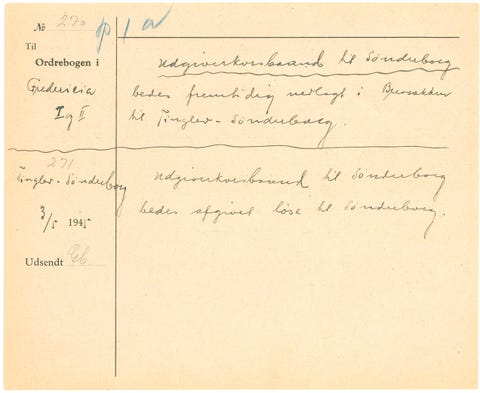 № 270 p 1 a
Til
Ordrebogen i
Fredericia
I og II
Udgiverkorsbaand til Sønderborg
bedes fremtidig nedlagt i Brevsækken
til Tinglev - Sønderborg.
271
Tinglev - Sønderborg
3/5 1945
Udgiverkorsbaand til Sønderborg
bedes afgivet løse til Sønderborg.
Udsendt